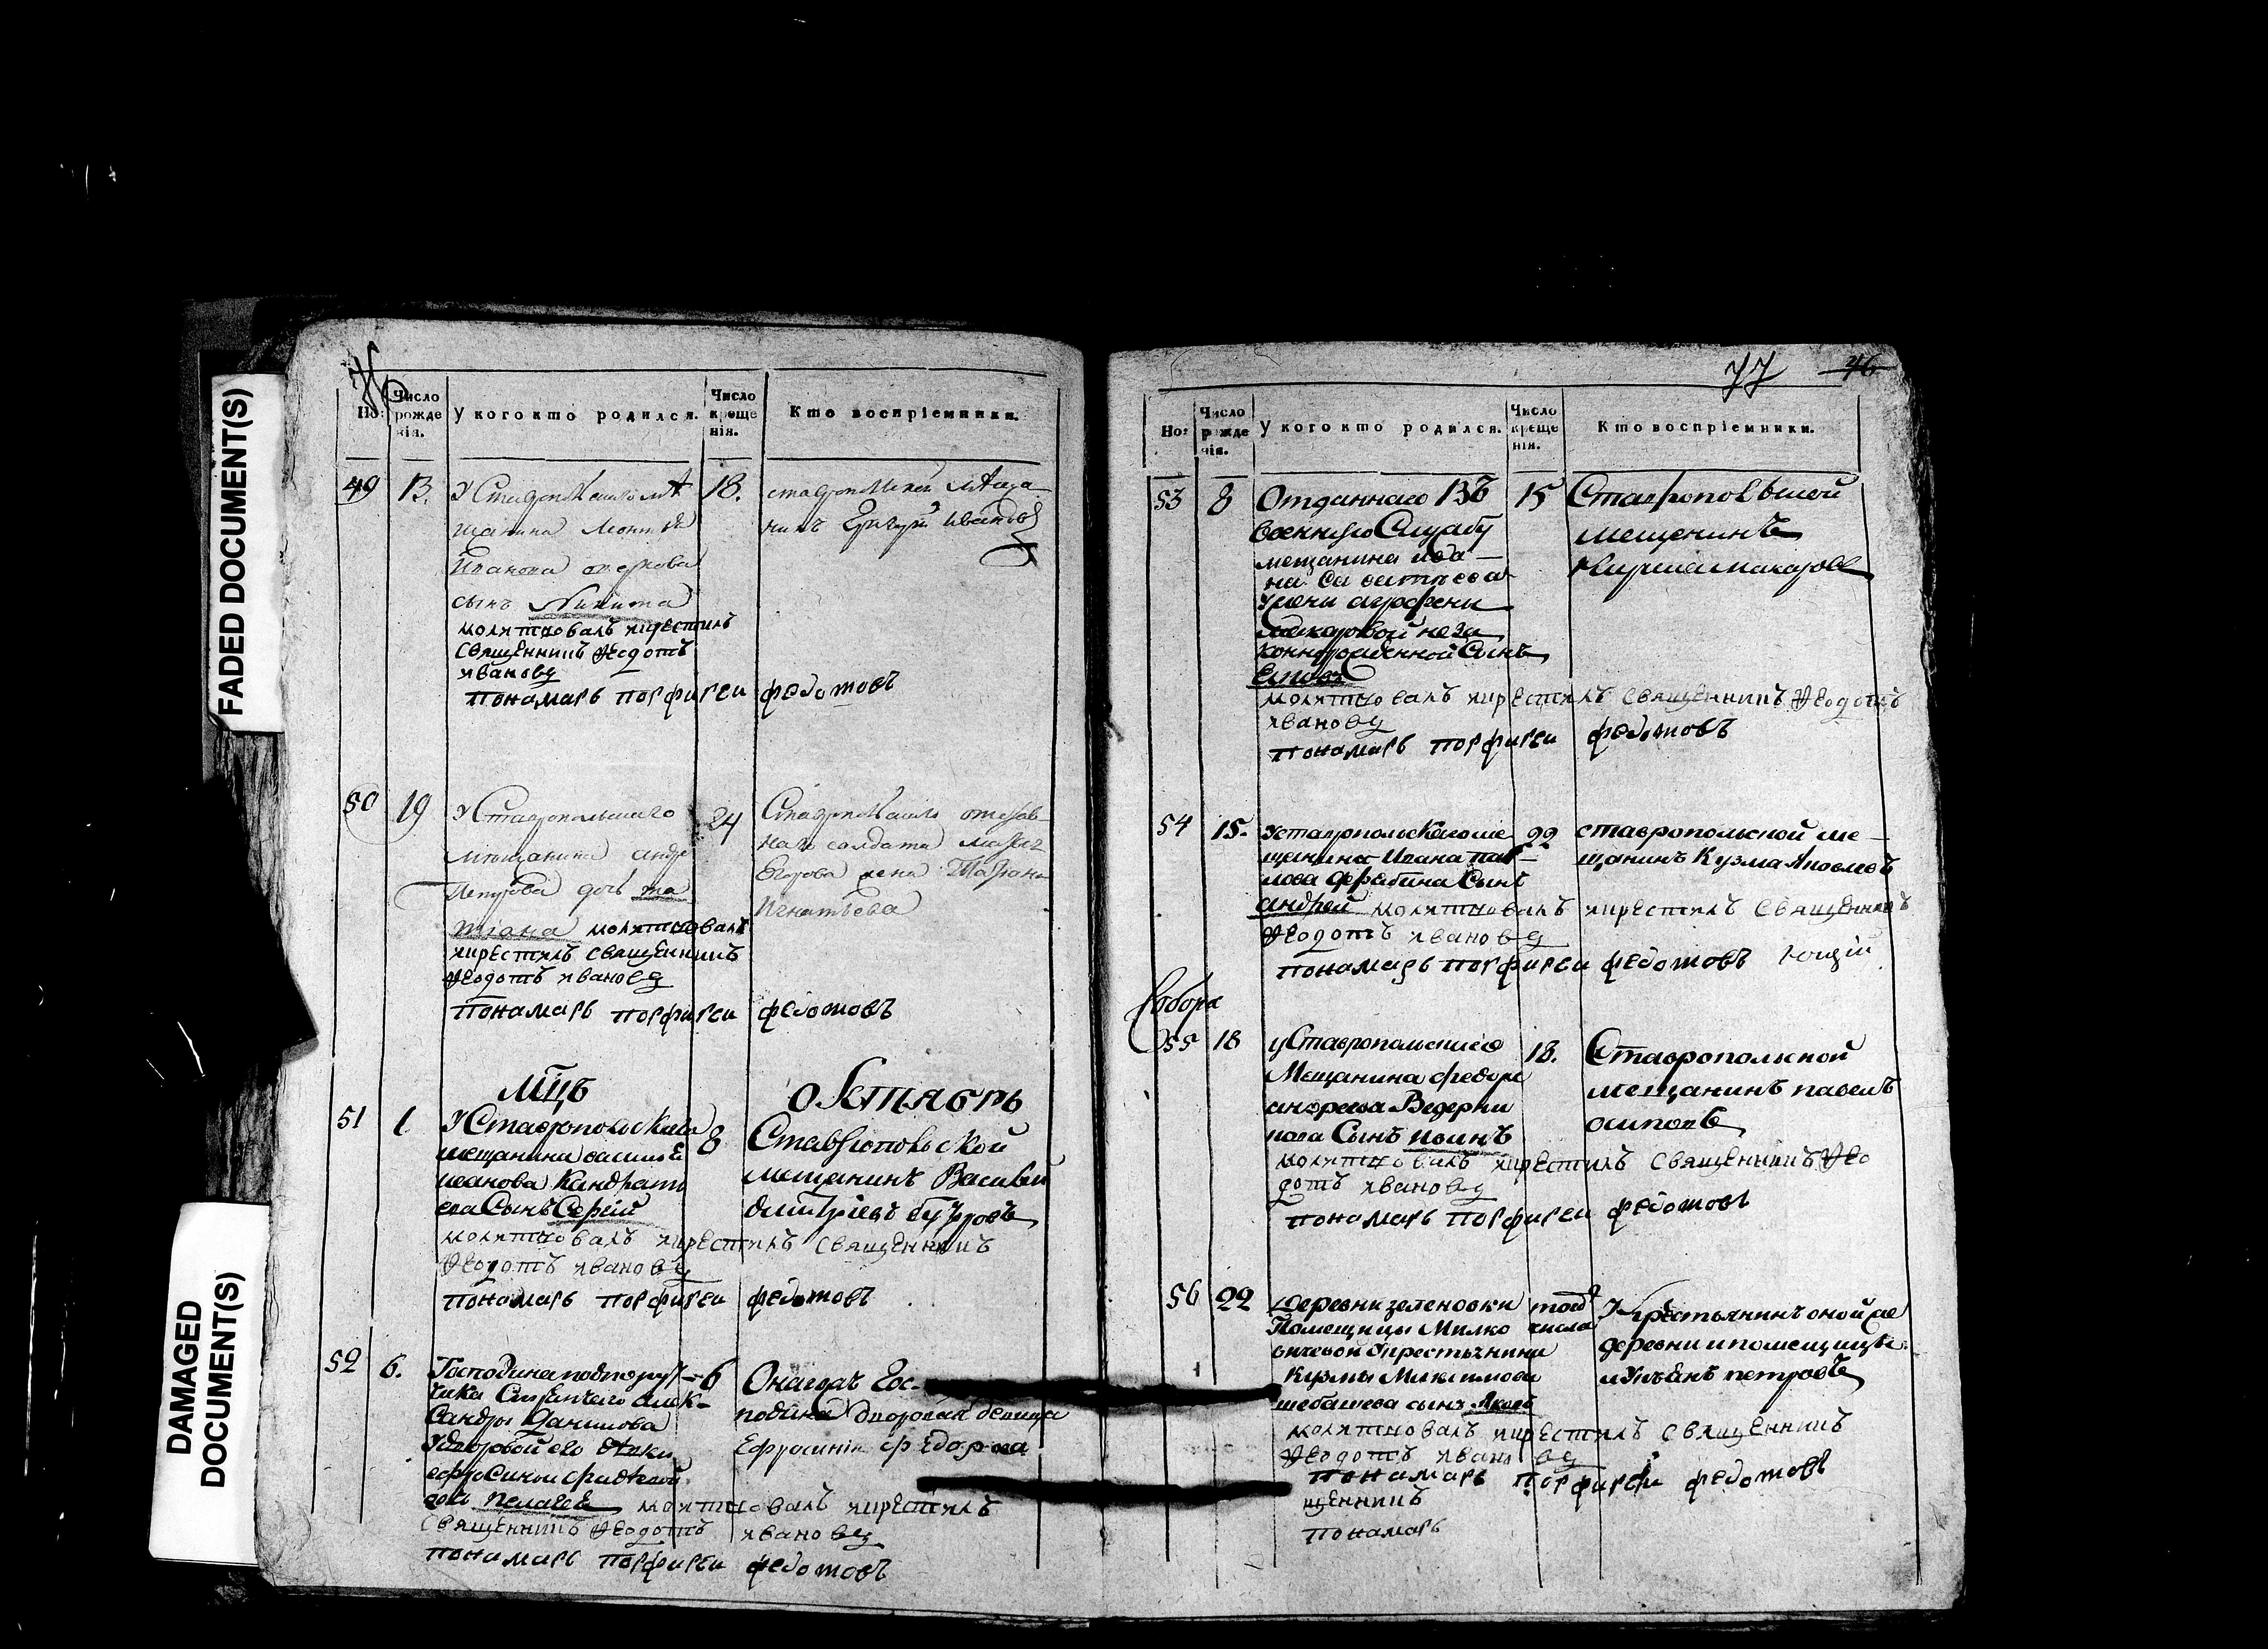 FADED DOCUMENT(S)
DAMAGED
DOCUMENT(S)
76
Но:
Число
рожде
нія.
У кого кто родился.
Число
креще
нія.
Кто воспріемники.
49 13.
У Ставропольскаго мѣ
щанина
Иванова
сынъ Никита
молитвовалъ икрестилъ
Священникъ Ѳеодотъ
ивановъ
пономарь порфирей федотовъ
18.
ставропольской мѣща
нинъ Григорий Ивановъ
50 19
У Ставропольскаго
мѣщанина андре
Петрова дочь та
тіана молитвовалъ
икрестилъ священникъ
Ѳеодотъ ивановъ
пономарь порфирей федотовъ
24
Ставропольскаго отстав
наго солдата
Егорова жена Татіана
Игнатьева
Мцъ октябрь
51 1
У Ставропольскаго
мещанина василья
иванова Кандрать
ева Сынъ Сергій
молитвовалъ икрестилъ священникъ
Ѳеодотъ ивановъ
пономарь порфирей федотовъ
8
Ставропольской
мещанинъ Василей
дмитріевъ
52 6.
Господина подпору
чика алек-
сандры Данилова
удворовой его девки
ефросиньи
дочь пелагея молитвовалъ икрестилъ
Священникъ Ѳеодотъ ивановъ
пономарь порфирей федотовъ
6
Онагожъ Гос-
подина дворовая девица
Ефросинія федорова
77 46
Но:
Число
рожде
нія.
У кого кто родился.
Число
креще
нія.
Кто воспріемники.
53 8
Отданнаго въ
военную Службу
мещанина ива
на
Ужены агрофены
макаровой неза
коннорожденной Сынъ
молитвовалъ икрестилъ священникъ Ѳеодотъ
ивановъ
пономарь порфирей федотовъ
15
Ставропольской
мещенинъ
макаровъ
54 15.
Уставропольскагоме
щенина Ивана пав
лова Сынъ
андрей молитвовалъ икрестилъ Священникъ
Ѳеодотъ ивановъ
пономарь порфирей федотовъ
22
ставропольской ме
щанинъ Кузма Яковлевъ
Собора
55 18
уСтавропольскаго
Мещанина федора
андреева Ведерни
кова Сынъ иванъ
молитвовалъ икрестилъ священникъ Ѳео
дотъ ивановъ
пономарь порфирей федотовъ
18.
Ставропольской
мещанинъ павелъ
осиповъ
56 22
Деревни зеленовки
Помещицы Милко
вичевой Укрестьянина
Кузмы Максимова
шебашева сынъ Яковъ
молитвовалъ икрестилъ священникъ
Ѳеодотъ ивановъ
пономарь порфирей федотовъ
щенникъ
пономарь
тогож
числа
Крестьянинъ оной же
деревни ипомещицы
петровъ